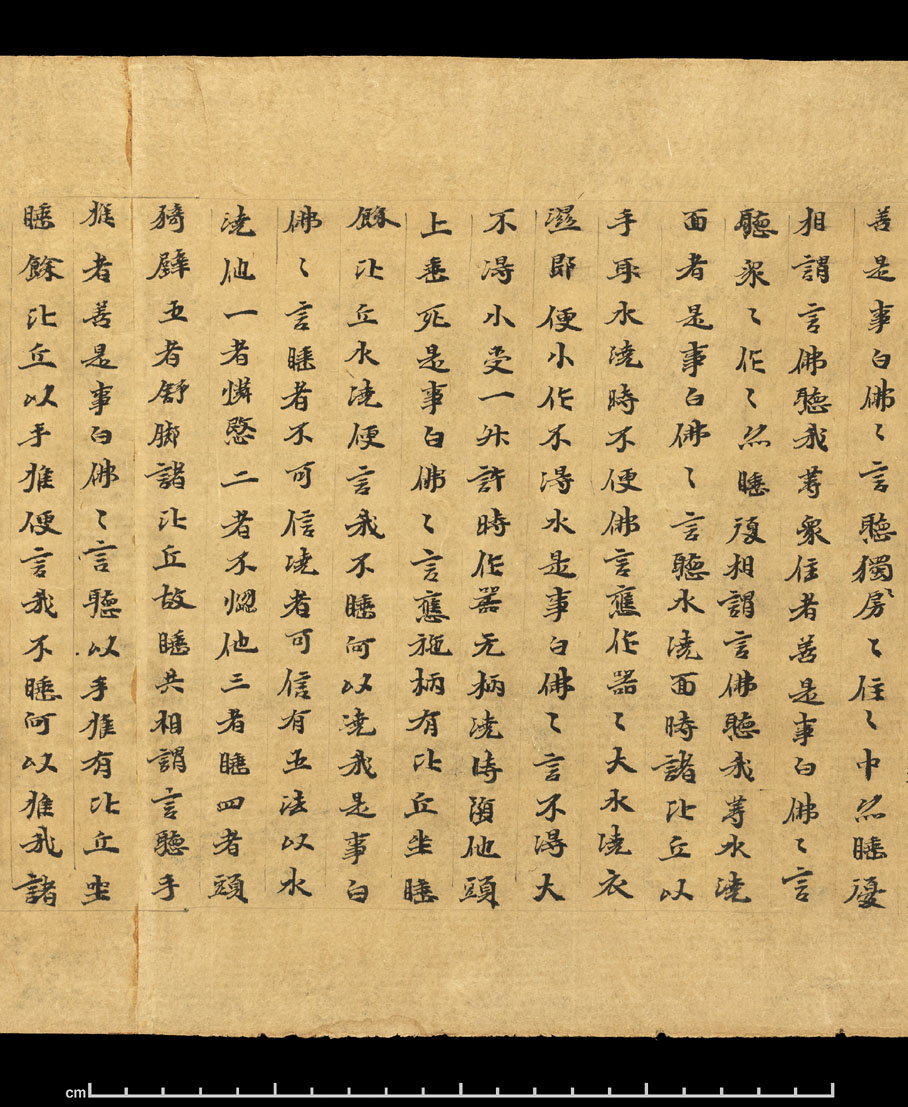 善是事白佛〻言聽獨房〻住〻中然睡復
相謂言佛聽我等衆住者善是事白佛〻言
聽衆〻作〻然睡復相謂言佛聽我等水澆
面者是事白佛〻言聽水澆面時諸比丘以
手取水澆時不便佛言應作器〻大水澆衣
濕即便小作不得水是事白佛〻言不得大
不得小受一升許時作器无柄澆時墮他頭
上垂死是事白佛〻言應施柄有比丘坐睡
餘比丘水澆便言我不睡何以澆我是事白
佛〻言睡者不可信澆者可信有五法以水
澆他一者憐愍二者不惱他三者睡四者頭
猗壁五者舒脚諸比丘故睡共相謂言聽手
推者善是事白佛〻言聽以手推有比丘坐
睡餘比丘以手推便言我不睡何以推我諸
cm